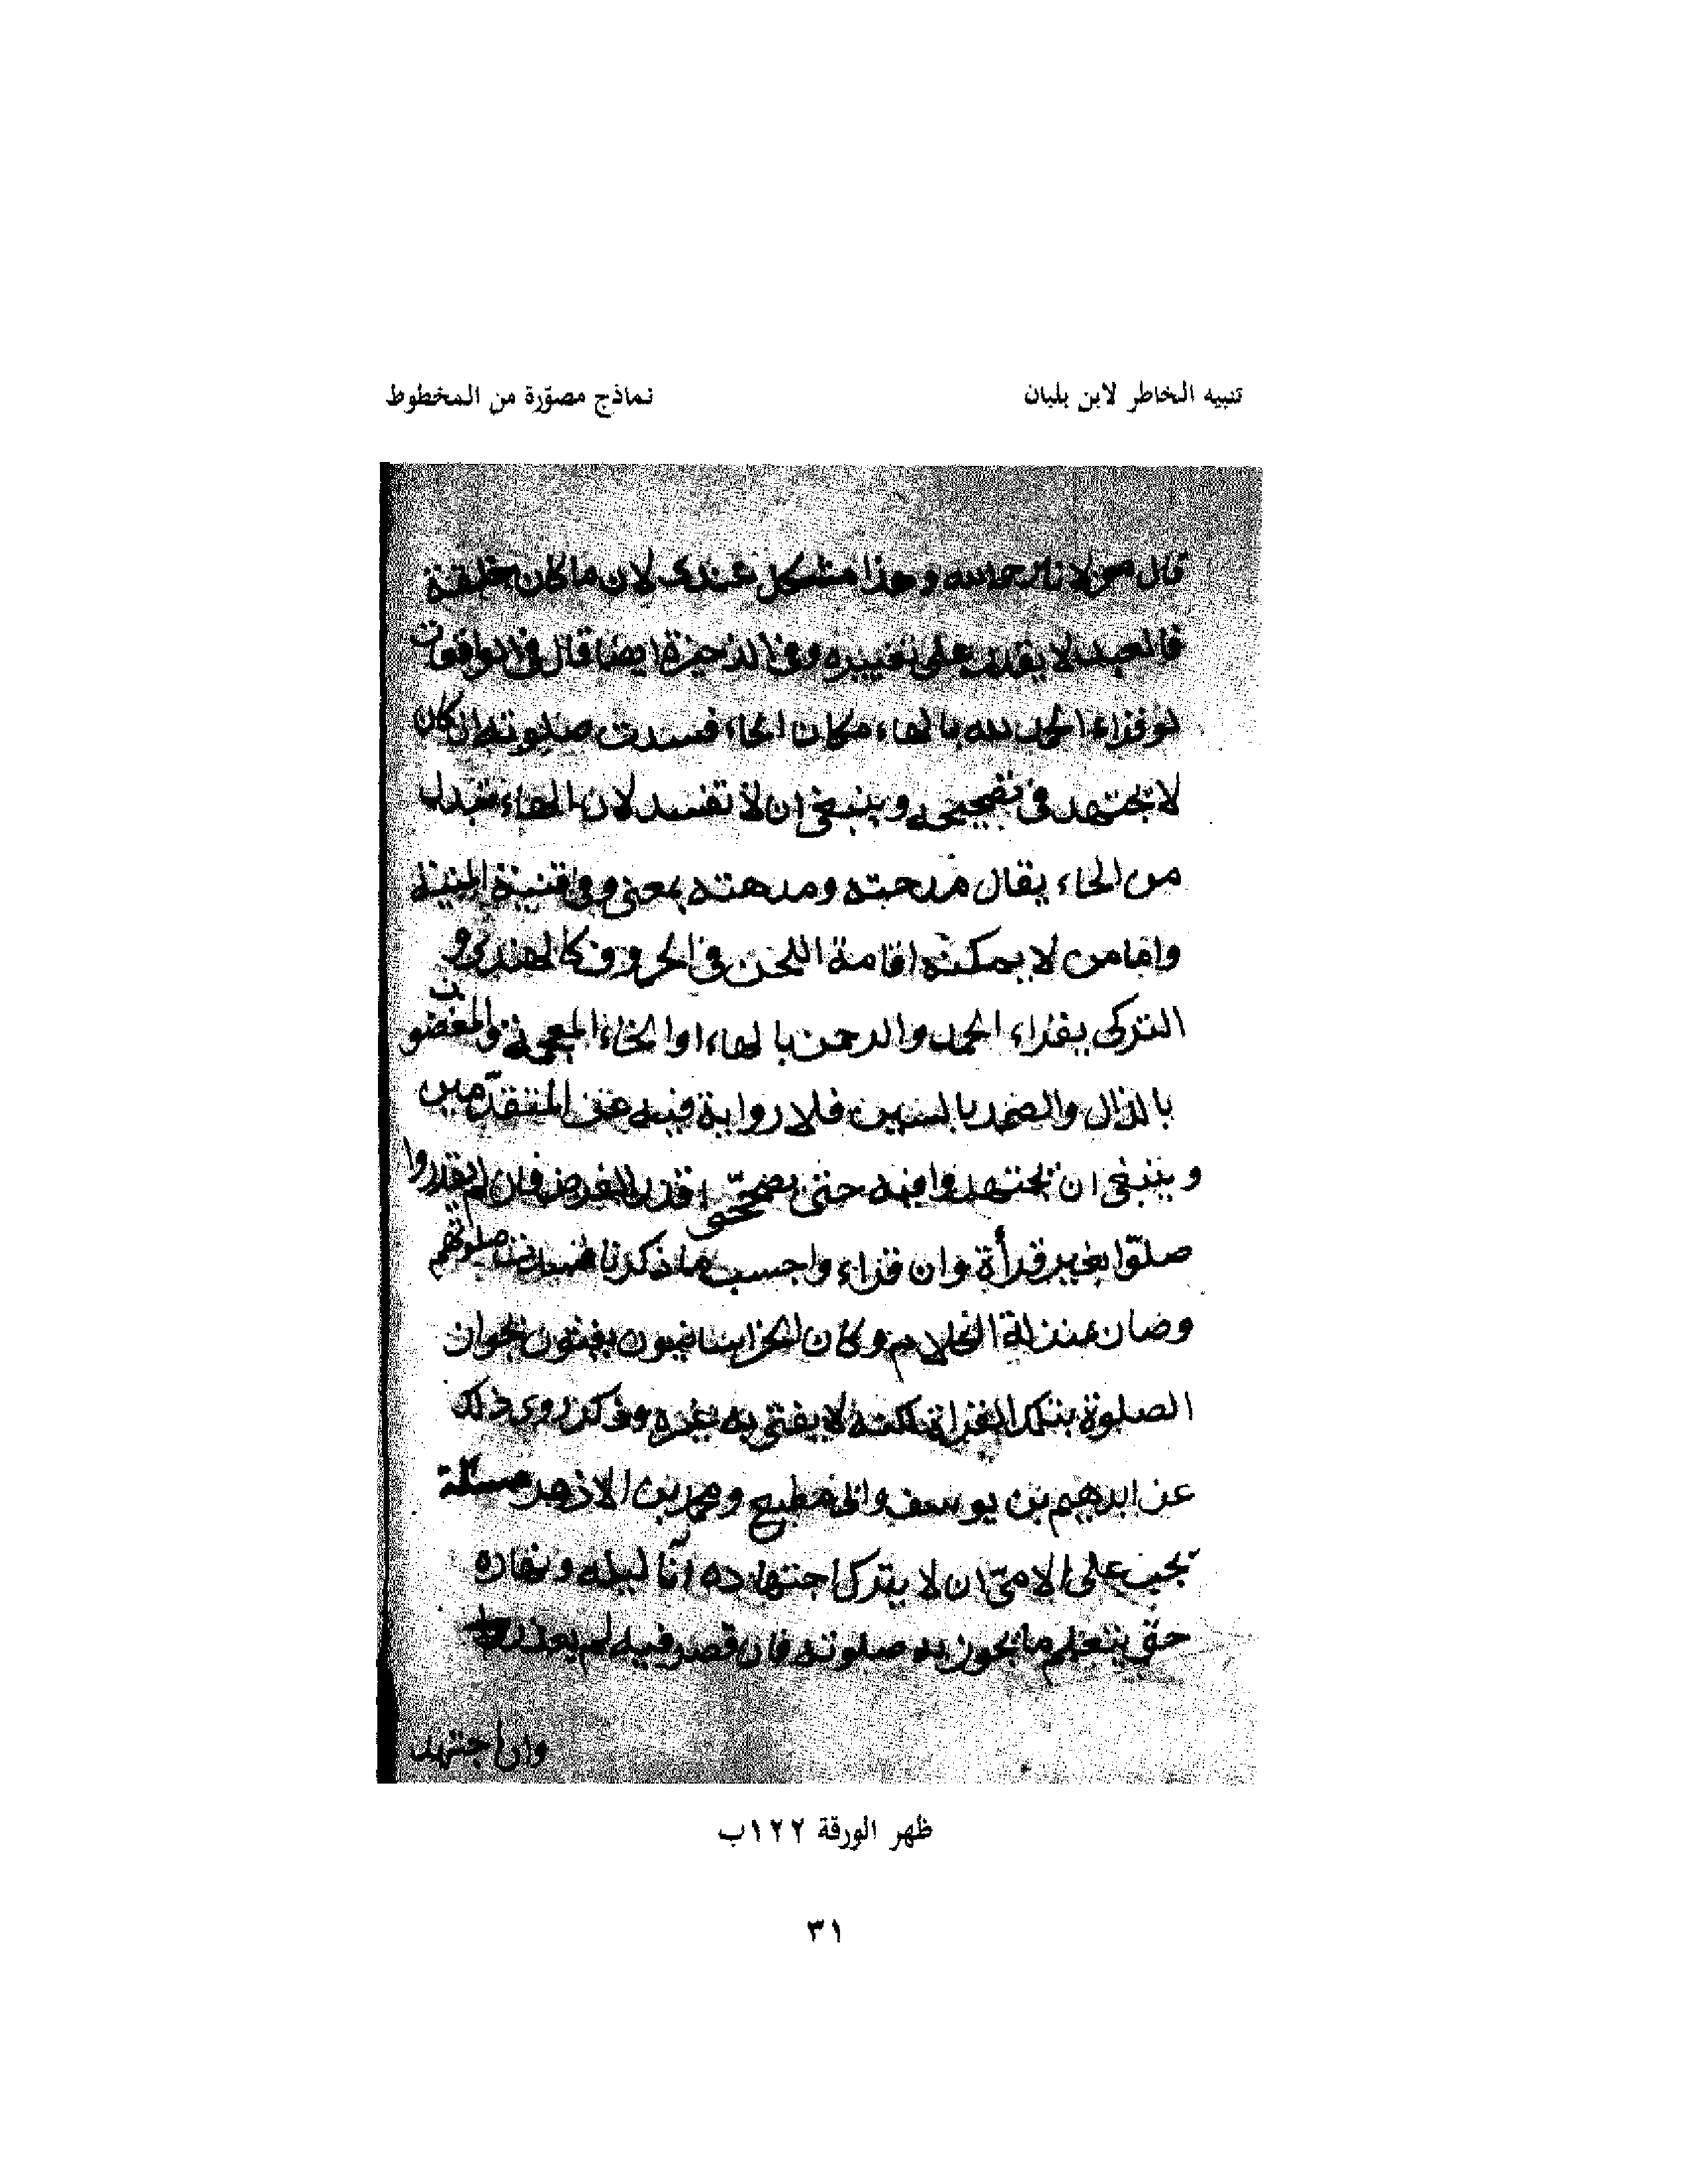 تنبيه الخاطر لابن بلبان
نماذج مصوّرة من المخطوط
قال مولانا رحمه الله وهذا مشكل عندى لان ما كان خلقة
فالعبد لا يقدر على تغييره وفى الذخيرة ايضا قال فى الواقعات
لو قراء الحمد لله بالهاء مكان الحاء فسدت صلوته ان كان
لا يجتهد فى تصحيحه وينبغى ان لا تفسد لان الهاء تبدل
من الحاء يقال مدحته ومدهته بمعنى وفى قنية المنية
واما من لا يمكنه اقامة اللحن فى الحروف كالهندى و
التركى يقراء الحمد والرحمن بالهاء او الخاء المعجمة والمغضوب
بالذال والصمد بالسين فلا رواية فيه عن المتقدّمين
وينبغى ان يجتهدوا فيه حتى يصحّحوا قدر الفرض فان لم يقدروا
صلّوا بغير قرأة وان قراء واحسب ما ذكرنا فسدت صلوتهم
وصار بمنزلة الكلام وكان الخراسانيون يفتون بجواز
الصلوة بتلك القراة لكنه لا يفتى به غيره وذكر روى ذلك
عن ابرهيم بن يوسف وابى مطيع ومحمد بن الازهر مسئلة
يجب على الامىّ ان لا يترك اجتهاده آنآ ليله ونهاره
حتى يتعلم ما يجوز به صلوته فان قصر فيه لم يعذر
وان اجتهد
ظهر الورقة ١٢٢ب
٣١